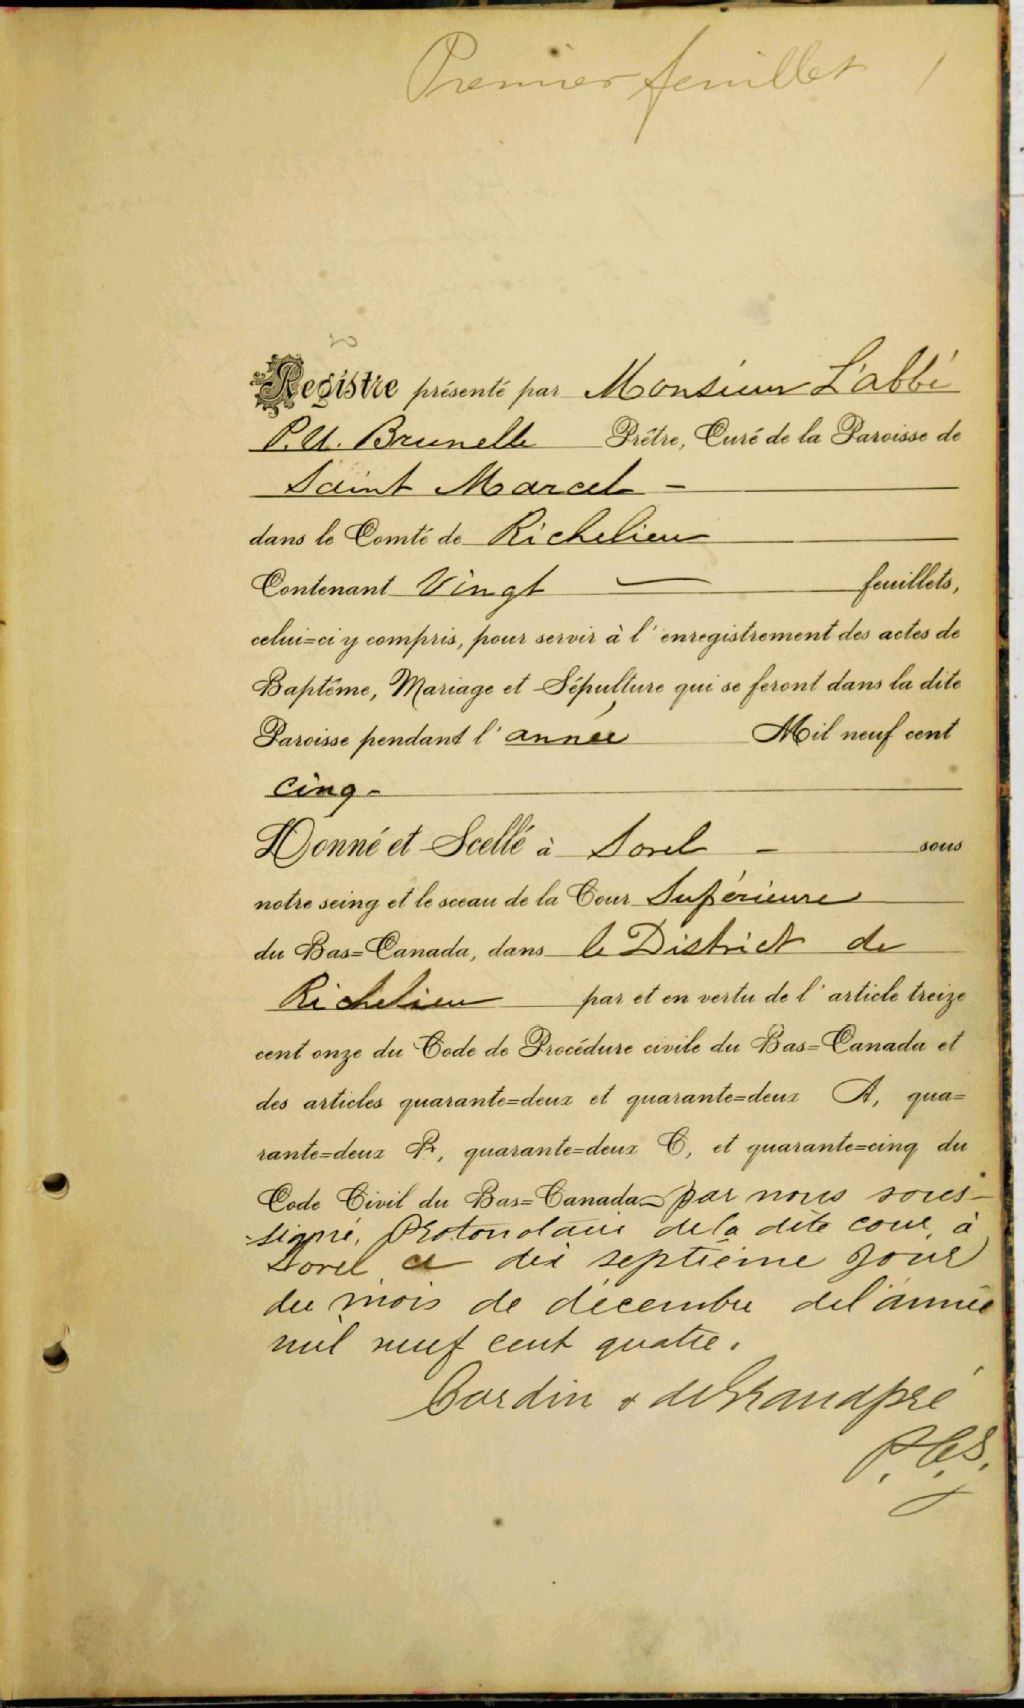 Premier feuillet 1
Registre présenté par Monsieur L'abbé
P.U. Brunelle Prêtre, Curé de la Paroisse de
Saint Marcel -
dans le Comté de Richelieu
Contenant Vingt — feuillets,
celui=ci y compris, pour servir à l'enregistrement des actes de
Baptême, Mariage et Sépulture qui se feront dans la dite
Paroisse pendant l'année Mil neuf cent
cinq -
Donné et Scellé à Sorel - sous
notre seing et le sceau de la Cour Supérieure
du Bas=Canada, dans le District de
Richelieu par et en vertu de l'article treize
cent onze du Code de Procédure civile du Bas=Canada et
des articles quarante=deux et quarante=deux A, qua=
rante=deux B, quarante=deux C, et quarante=cinq du
Code Civil du Bas=Canada par nous sous-
signé, Protonotaire de la dite cour, à
Sorel ce dix septième jour
du mois de décembre de l'année
mil neuf cent quatre.
Cardin & deGrandpré
P.C.S.